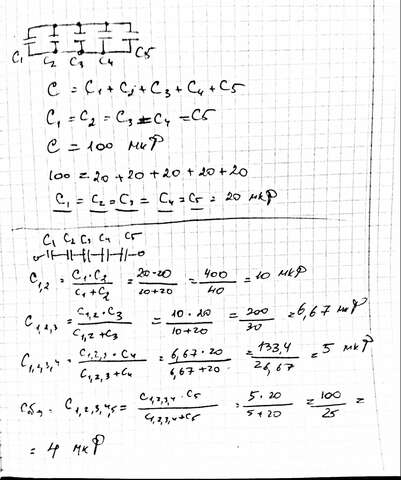 C₁ C₂ C₃ C₄ C5
C = C₁ + C₂ + C₃ + C₄ + C5
C₁ = C₂ = C₃ = C₄ = C5
C = 100 мкФ
100 = 20 + 20 + 20 + 20 + 20
C₁ = C₂ = C₃ = C₄ = C₅ = 20 мкФ
C₁ C₂ C₃ C₄ C5
C₁,₂ = C₁·C₂ / C₁+C₂ = 20·20 / 20+20 = 400 / 40 = 10 мкФ
C₁,₂,₃ = C₁,₂·C₃ / C₁,₂+C₃ = 10·20 / 10+20 = 200 / 30 = 6,67 мкФ
C₁,₂,₃,₄ = C₁,₂,₃·C₄ / C₁,₂,₃+C₄ = 6,67·20 / 6,67+20 = 133,4 / 26,67 = 5 мкФ
Cбщ = C₁,₂,₃,₄,₅ = C₁,₂,₃,₄·C₅ / C₁,₂,₃,₄+C5 = 5·20 / 5+20 = 100 / 25 =
= 4 мкФ